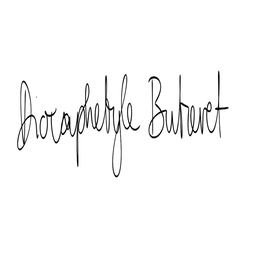 Dioraphetyle Buteret